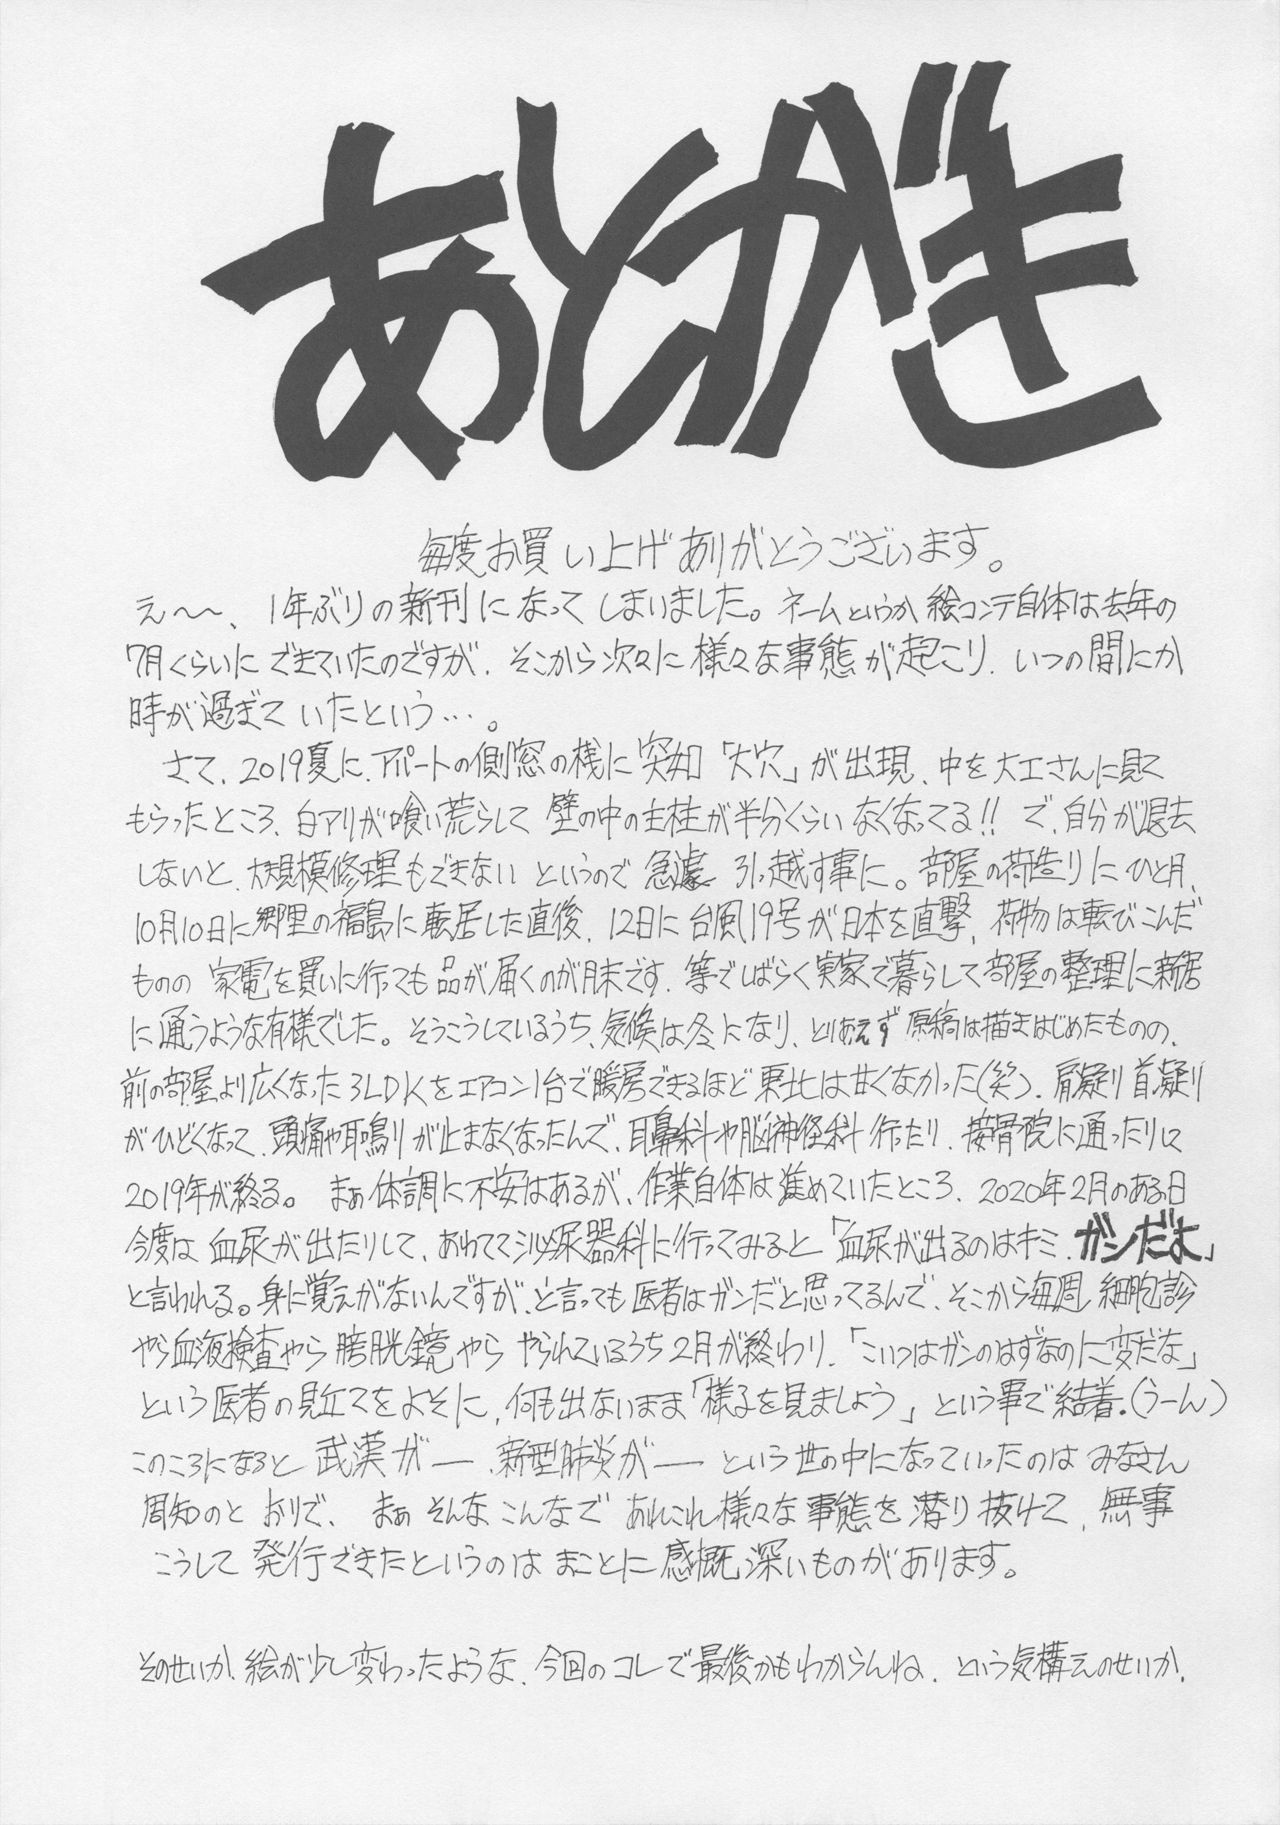 あとがき
毎度お買い上げありがとうございます。
え〜〜、1年ぶりの新刊になってしまいました。ネームというか絵コンテ自体は去年の
7月くらいにできていたのですが、そこから次々に様々な事態が起こり、いつの間にか
時が過ぎていたという…。
さて、2019夏に、アパートの側窓の桟に突如「大穴」が出現、中を大工さんに見て
もらったところ、白アリが喰い荒らして壁の中の主柱が半分くらいなくなってる!! で、自分が退去
しないと、大規模修理もできないというので急遽引っ越す事に。部屋の荷造りにひと月、
10月10日に郷里の福島に転居した直後、12日に台風19号が日本を直撃、荷物は転びこんだ
ものの家電を買いに行っても品が届くのが月末です、等でしばらく実家で暮らして部屋の整理に新居
に通うような有様でした。そうこうしているうち、気候は冬になり、とりあえず原稿は描きはじめたものの、
前の部屋より広くなった3LDKをエアコン1台で暖房できるほど東北は甘くなかった(笑)、肩凝り首凝り
がひどくなって、頭痛や耳鳴りが止まなくなったんで、耳鼻科や脳神経科行ったり、接骨院に通ったりに
2019年が終る。まぁ体調に不安はあるが、作業自体は進めていたところ、2020年2月のある日
今度は血尿が出たりして、あわてて泌尿器科に行ってみると「血尿が出るのはキミ、ガンだよ」
と言われる。身に覚えがないんですが、と言っても医者はガンだと思ってるんで、そこから毎週細胞診
やら血液検査やら膀胱鏡やらやられているうち2月が終わり、「こいつはガンのはずなのに変だな」
という医者の見立てをよそに、何も出ないまま「様子を見ましょう」という事で結着。(うーん)
このころになると武漢がー、新型肺炎がーという世の中になっていったのはみなさん
周知のとおりで、まぁそんなこんなであれこれ様々な事態を潜り抜けて、無事
こうして発行できたというのはまことに感慨深いものがあります。
そのせいか、絵が少し変わったような、今回のコレで最後かもわからんね、という気構えのせいか、